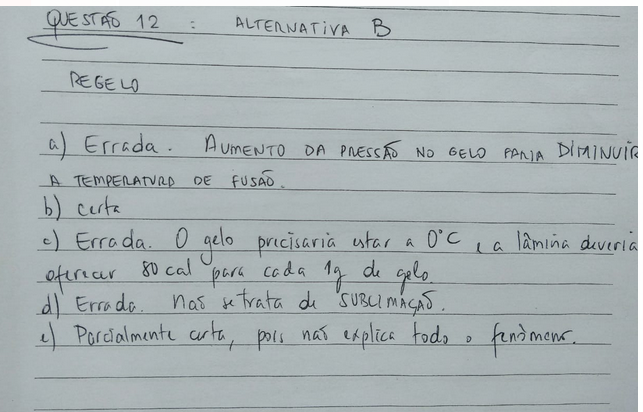 QUESTÃO 12 : ALTERNATIVA B
REGELO
a) Errada. AUMENTO DA PRESSÃO NO GELO FARIA DIMINUIR
A TEMPERATURA DE FUSÃO.
b) certa
c) Errada. O gelo precisaria estar a 0°C e a lâmina deveria
oferecer 80 cal para cada 1g de gelo.
d) Errada. Não se trata de SUBLIMAÇÃO.
e) Parcialmente certa, pois não explica todo o fenômeno.